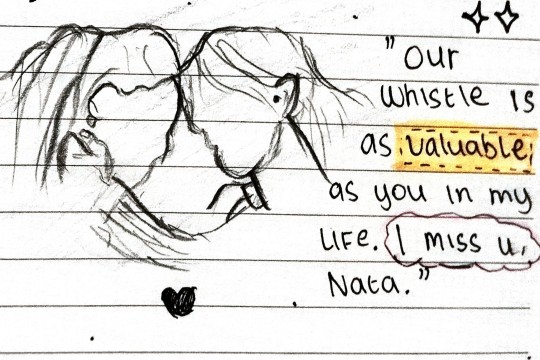 "Our
Whistle is
as valuable,
as you in my
Life. I miss u,
Nata."